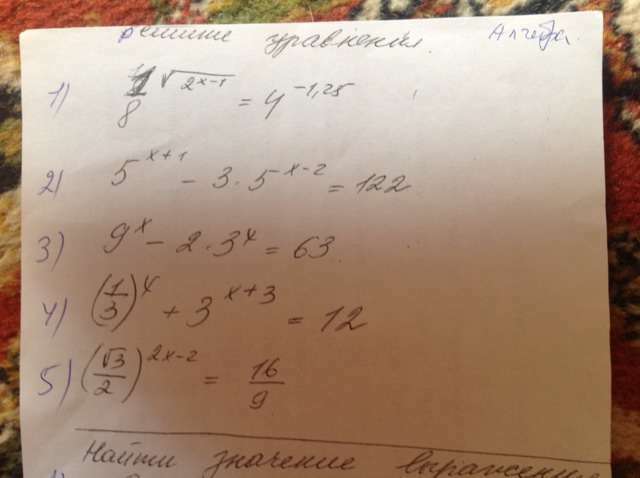 Решите уравнения. Алгебра.
1) 8^√(2x-1) = 4^(-1,25)
2) 5^(x+1) - 3·5^(x-2) = 122
3) 9^x - 2·3^x = 63
4) (1/3)^x + 3^(x+3) = 12
5) (√3/2)^(2x-2) = 16/9
Найти значение выражение